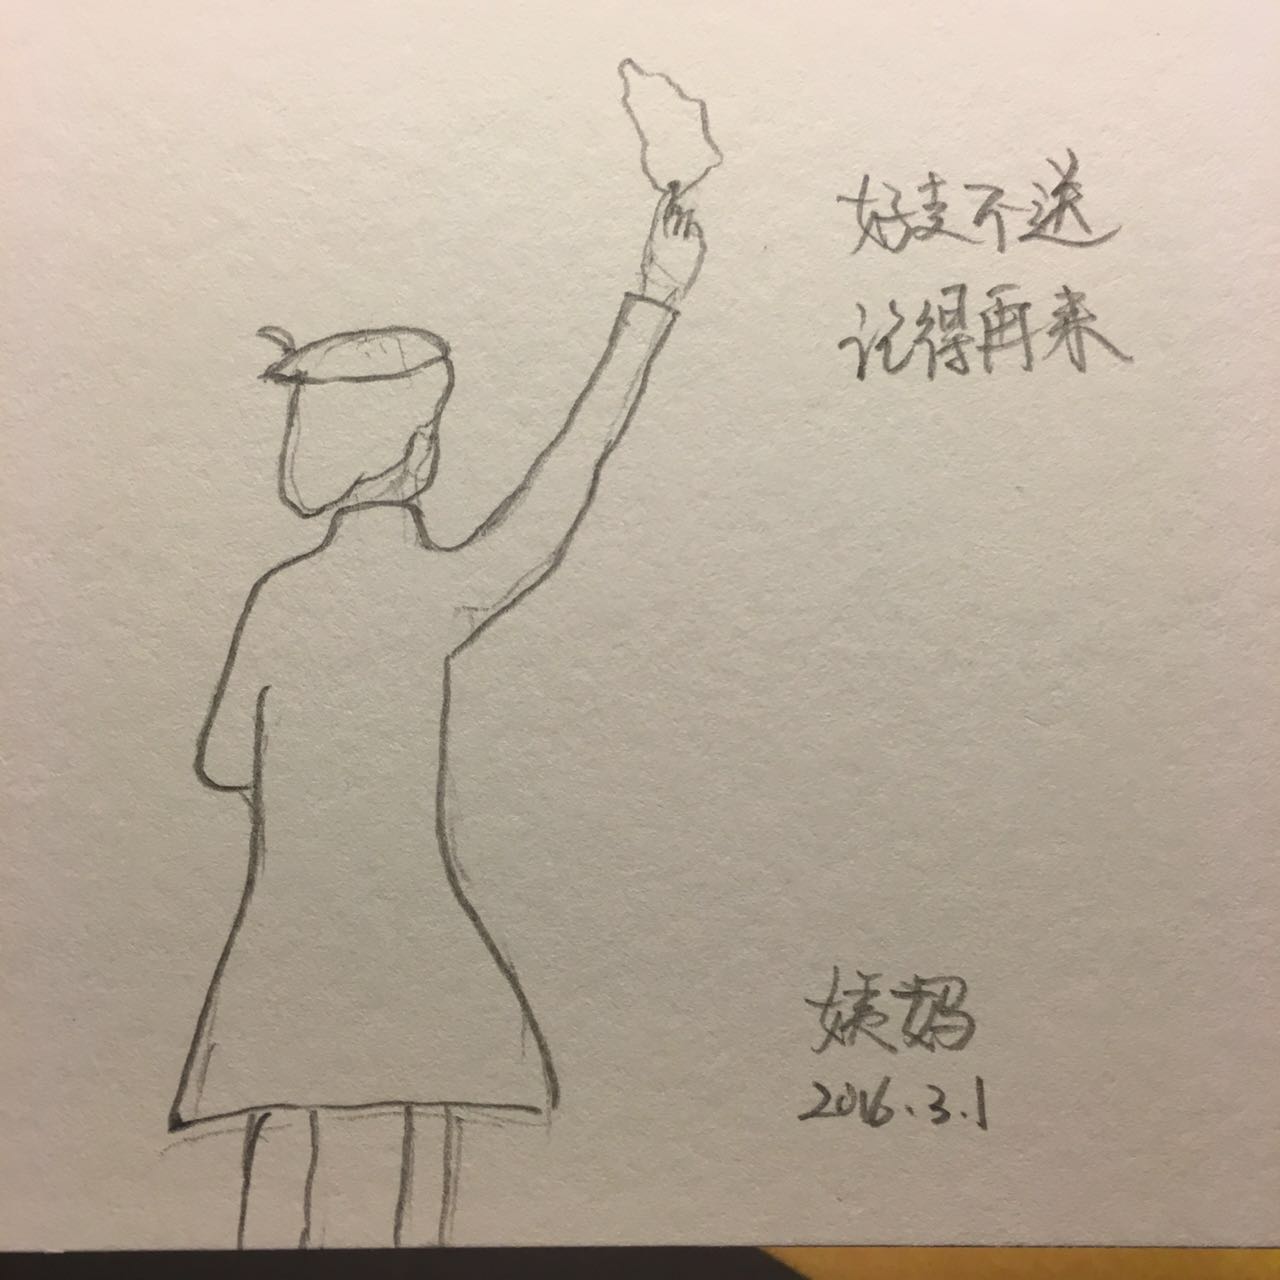 好走不送
记得再来
姨妈
2016.3.1